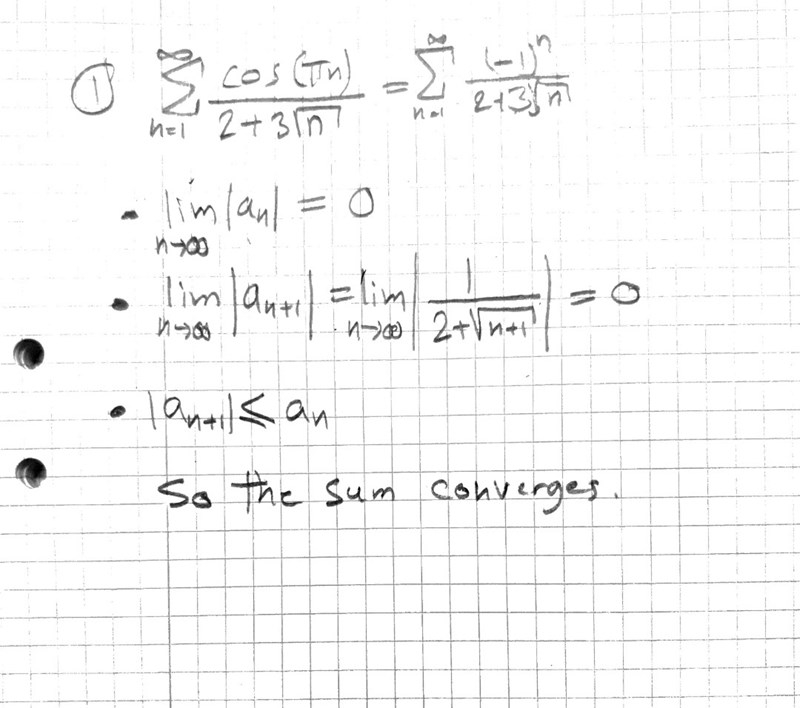 ① ∑_{n=1}^{∞} cos(πn) / (2+3√n) = ∑_{n=1}^{∞} (-1)^n / (2+3√n)
• lim_{n→∞} |a_n| = 0
• lim_{n→∞} |a_{n+1}| = lim_{n→∞} |1 / (2+√(n+1))| = 0
• |a_{n+1}| ≤ a_n
So the sum converges.